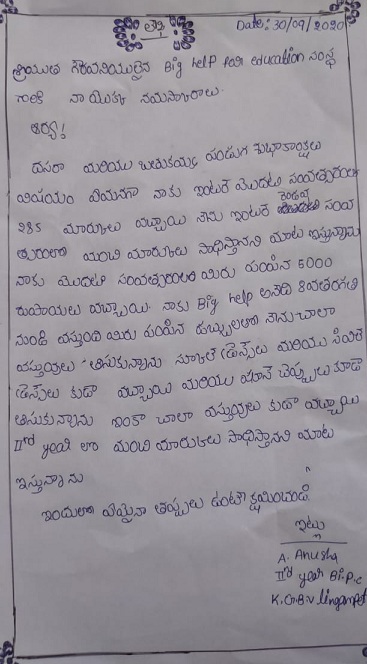 లేఖ
Date: 30/09/2020
శ్రీయుత గౌరవనీయులైన Big help for education సంస్థ
గారికి నా యొక్క నమస్కారాలు.
ఆర్య!
దసరా మరియు బతుకమ్మ పండుగ శుభాకాంక్షలు
విషయం ఏమనగా నాకు ఇంటర్ మొదటి సంవత్సరంలో
285 మార్కులు వచ్చాయి నేను ఇంటర్ రెండవ సంవ
త్సరంలో మంచి మార్కులు సాధిస్తానని మాట ఇస్తున్నాను
నాకు మొదటి సంవత్సరంలో మీరు పంపిన 5000
రూపాయలు వచ్చాయి. నాకు Big help అనేది 8వతరగతి
నుండి వస్తుంది మీరు పంపిన డబ్బులతో నేను చాలా
వస్తువులు తీసుకున్నాను స్కూల్ డ్రెస్సులు మరియు సివిల్
డ్రెస్సులు కూడా వచ్చాయి మరియు యానే చెప్పులు కూడా
తీసుకున్నాను ఇంకా చాలా వస్తువులు కూడా వచ్చాయి
IIrd year లో మంచి మార్కులు సాధిస్తానని మాట
ఇస్తున్నాను
ఇందులో ఏమైనా తప్పులు ఉంటే క్షమించండి
ఇట్లు
A. Anusha
IInd year Bi.P.C
K.G.B.V lingampet